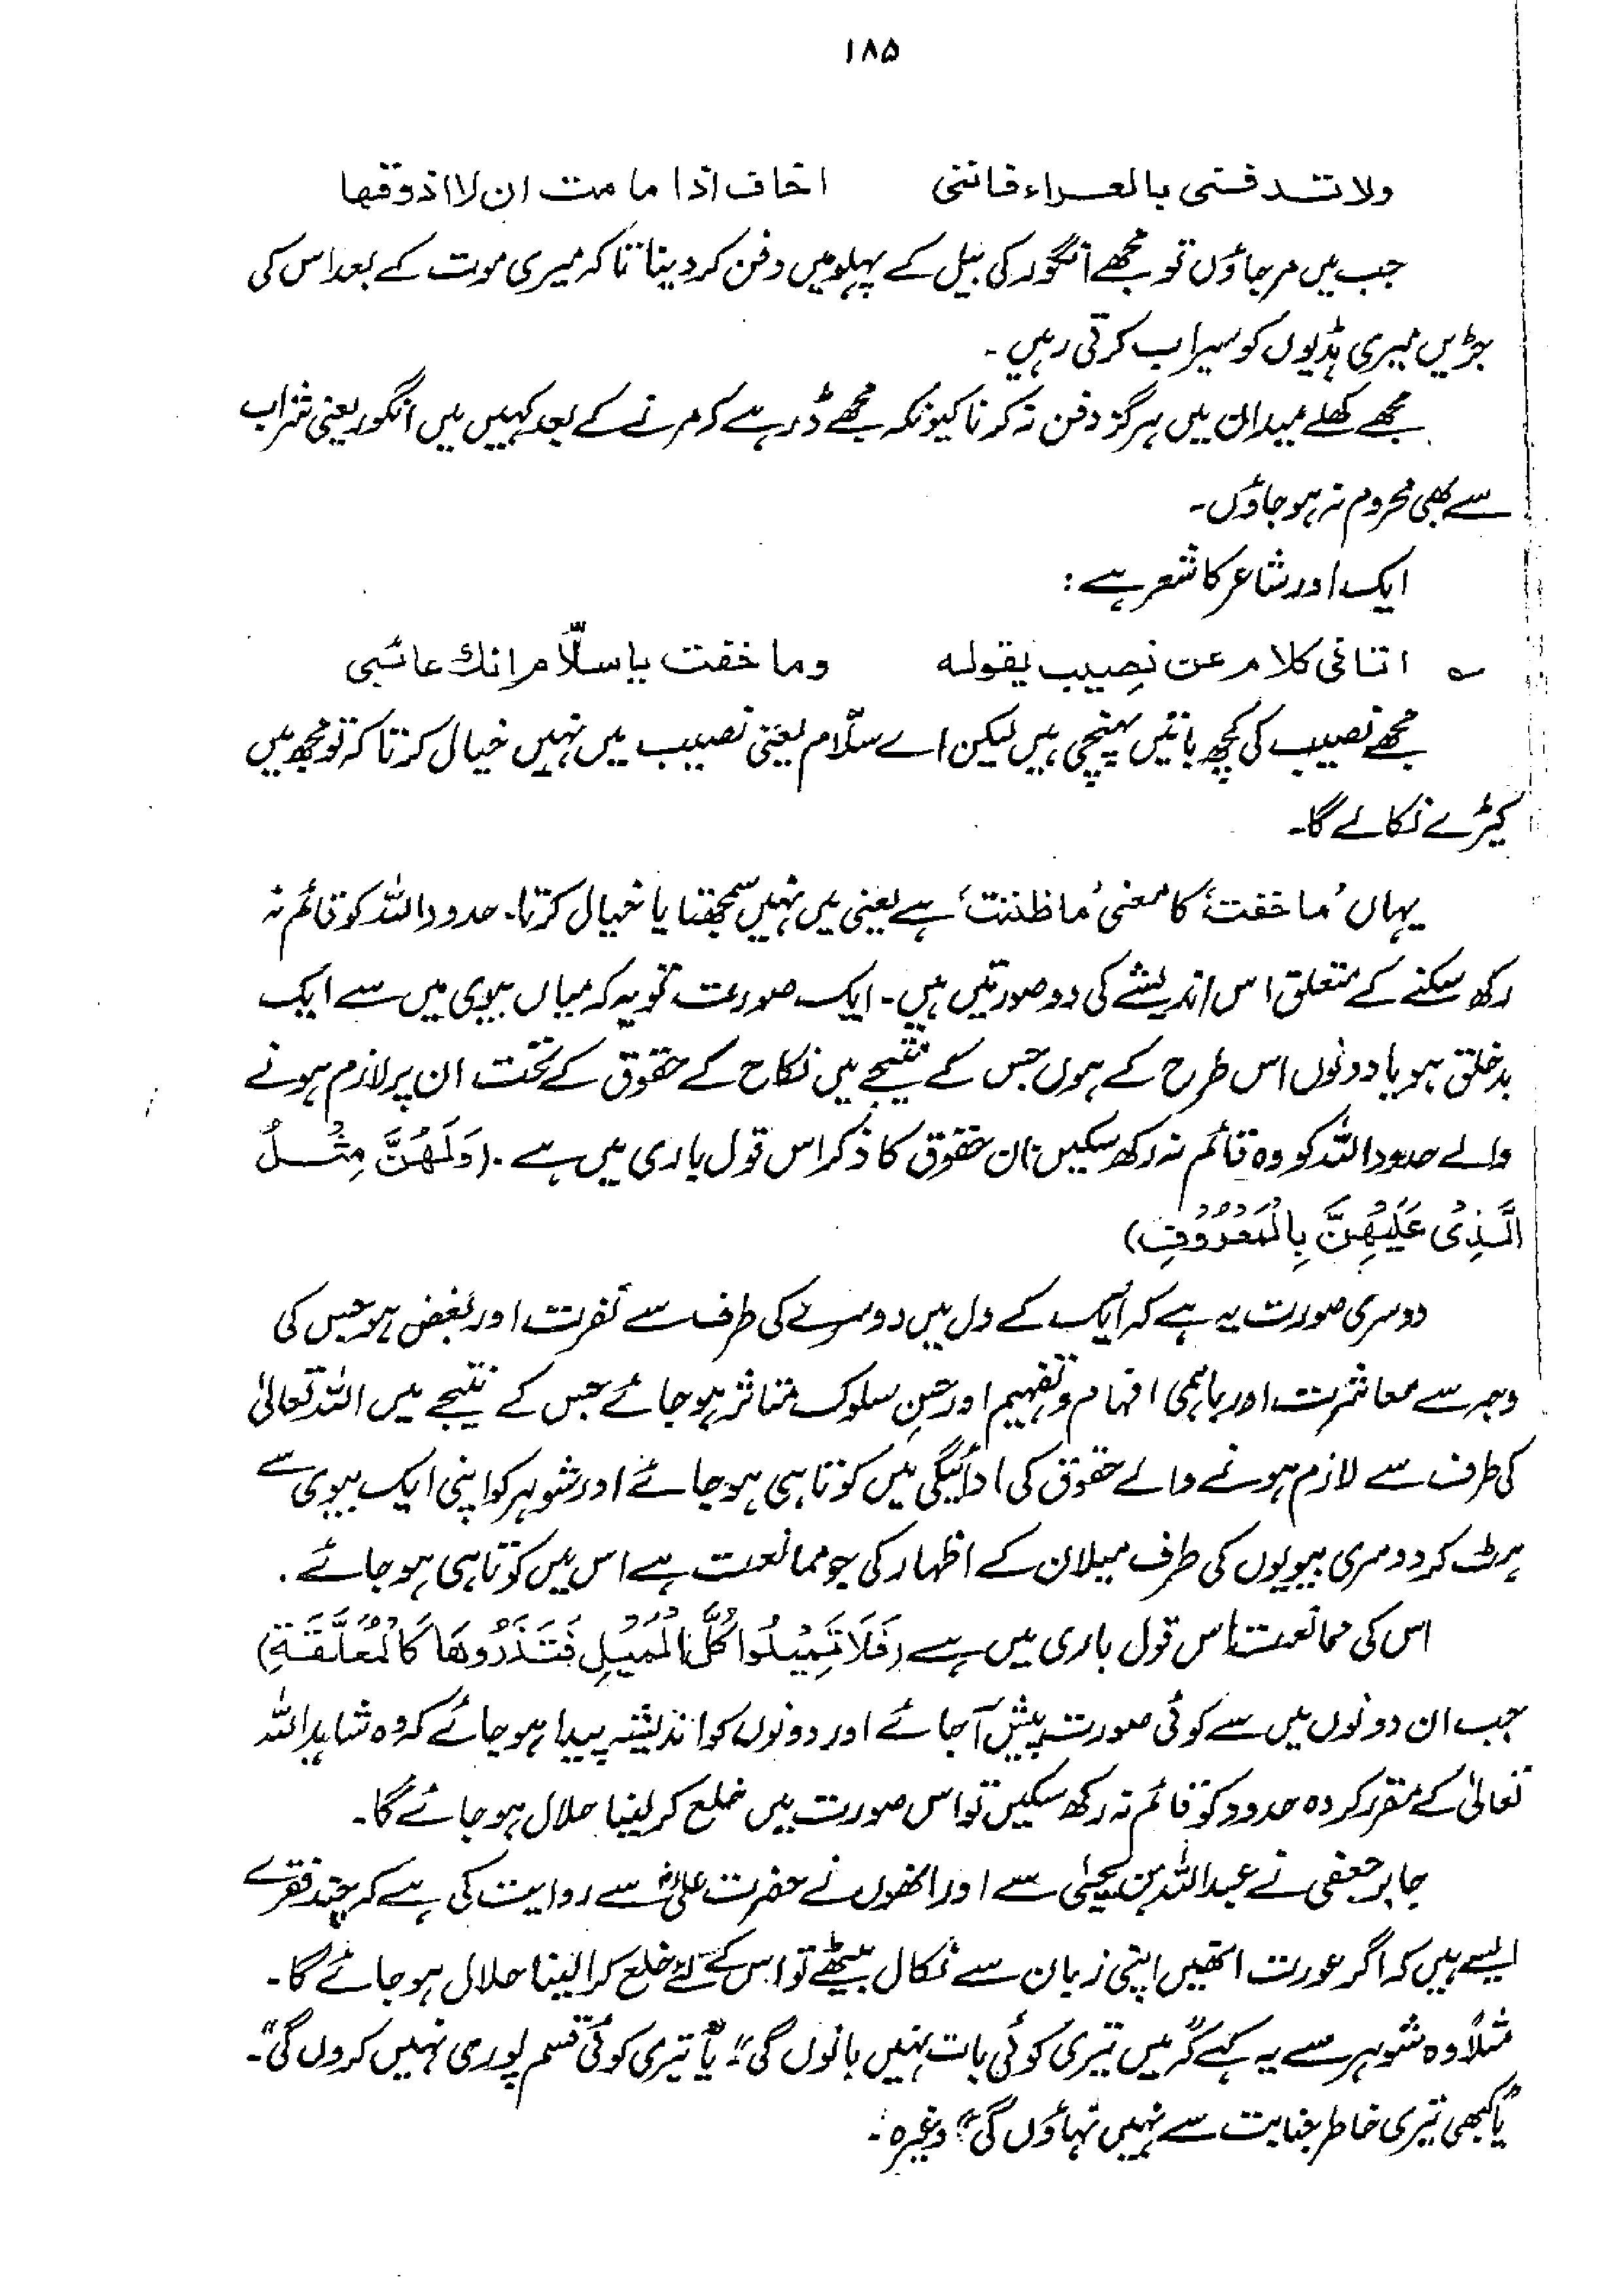 ۱۸۵
ولا تدفننی بالعراء فاننی اخاف اذا ما مت ان لا اذوقھا
جب میں مر جاؤں تو مجھے انگور کی بیل کے پہلو میں دفن کر دینا تاکہ میری موت کے بعد اس کی
جڑیں میری ہڈیوں کو سیراب کرتی رہیں۔
مجھے کھلے میدان میں ہرگز دفن نہ کرنا کیونکہ مجھے ڈر ہے کہ مرنے کے بعد کہیں میں انگور یعنی شراب
سے بھی محروم نہ ہو جاؤں۔
ایک اور شاعر کا شعر ہے:
؎ اتانی کلام عن نصیب یقولہ وما خفت یا سلّام انك عائبی
مجھے نصیب کی کچھ باتیں پہنچی ہیں لیکن اے سلّام یعنی نصیب میں نہیں خیال کرتا کہ تو مجھ میں
کیڑے نکالے گا۔
یہاں ’ما خفت‘ کا معنی ’ما ظننت‘ ہے یعنی میں نہیں سمجھتا یا خیال کرتا۔ حدود اللہ کو قائم نہ
رکھ سکنے کے متعلق اس اندیشے کی دو صورتیں ہیں۔ ایک صورت تو یہ کہ میاں بیوی میں سے ایک
بدخلق ہو یا دونوں اس طرح کے ہوں جس کے نتیجے میں نکاح کے حقوق کے تحت ان پر لازم ہونے
والے حدود اللہ کو وہ قائم نہ رکھ سکیں ان حقوق کا ذکر اس قول باری میں ہے۔ (وَلَهُنَّ مِثْلُ
الَّذِیْ عَلَیْهِنَّ بِالْمَعْرُوْفِ)
دوسری صورت یہ ہے کہ ایک کے دل میں دوسرے کی طرف سے نفرت اور بغض ہو جس کی
وجہ سے معاشرت اور باہمی افہام و تفہیم اور حسنِ سلوک متاثر ہو جائے جس کے نتیجے میں اللہ تعالیٰ
کی طرف سے لازم ہونے والے حقوق کی ادائیگی میں کوتاہی ہو جائے اور شوہر کو اپنی ایک بیوی سے
ہٹ کر دوسری بیویوں کی طرف میلان کے اظہار کی جو ممانعت ہے اس میں کوتاہی ہو جائے۔
اس کی ممانعت اس قول باری میں ہے (فَلَا تَمِیْلُوْا کُلَّ الْمَیْلِ فَتَذَرُوْهَا کَالْمُعَلَّقَةِ)
جب ان دونوں میں سے کوئی صورت پیش آ جائے اور دونوں کو اندیشہ پیدا ہو جائے کہ وہ شاید اللہ
تعالیٰ کے مقرر کردہ حدود کو قائم نہ رکھ سکیں تو اس صورت میں خلع کر لینا حلال ہو جائے گا۔
جابر جعفی نے عبداللہ بن یحییٰ سے اور انھوں نے حضرت علیؓ سے روایت کی ہے کہ چند فقرے
ایسے ہیں کہ اگر عورت انھیں اپنی زبان سے نکال بیٹھے تو اس کے لئے خلع کرا لینا حلال ہو جائے گا۔
مثلاً وہ شوہر سے یہ کہے کہ ”میں تیری کوئی بات نہیں مانوں گی“، یا ”تیری کوئی قسم پوری نہیں کروں گی“۔
یا ”کبھی تیری خاطر جنابت سے نہیں نہاؤں گی“ وغیرہ۔